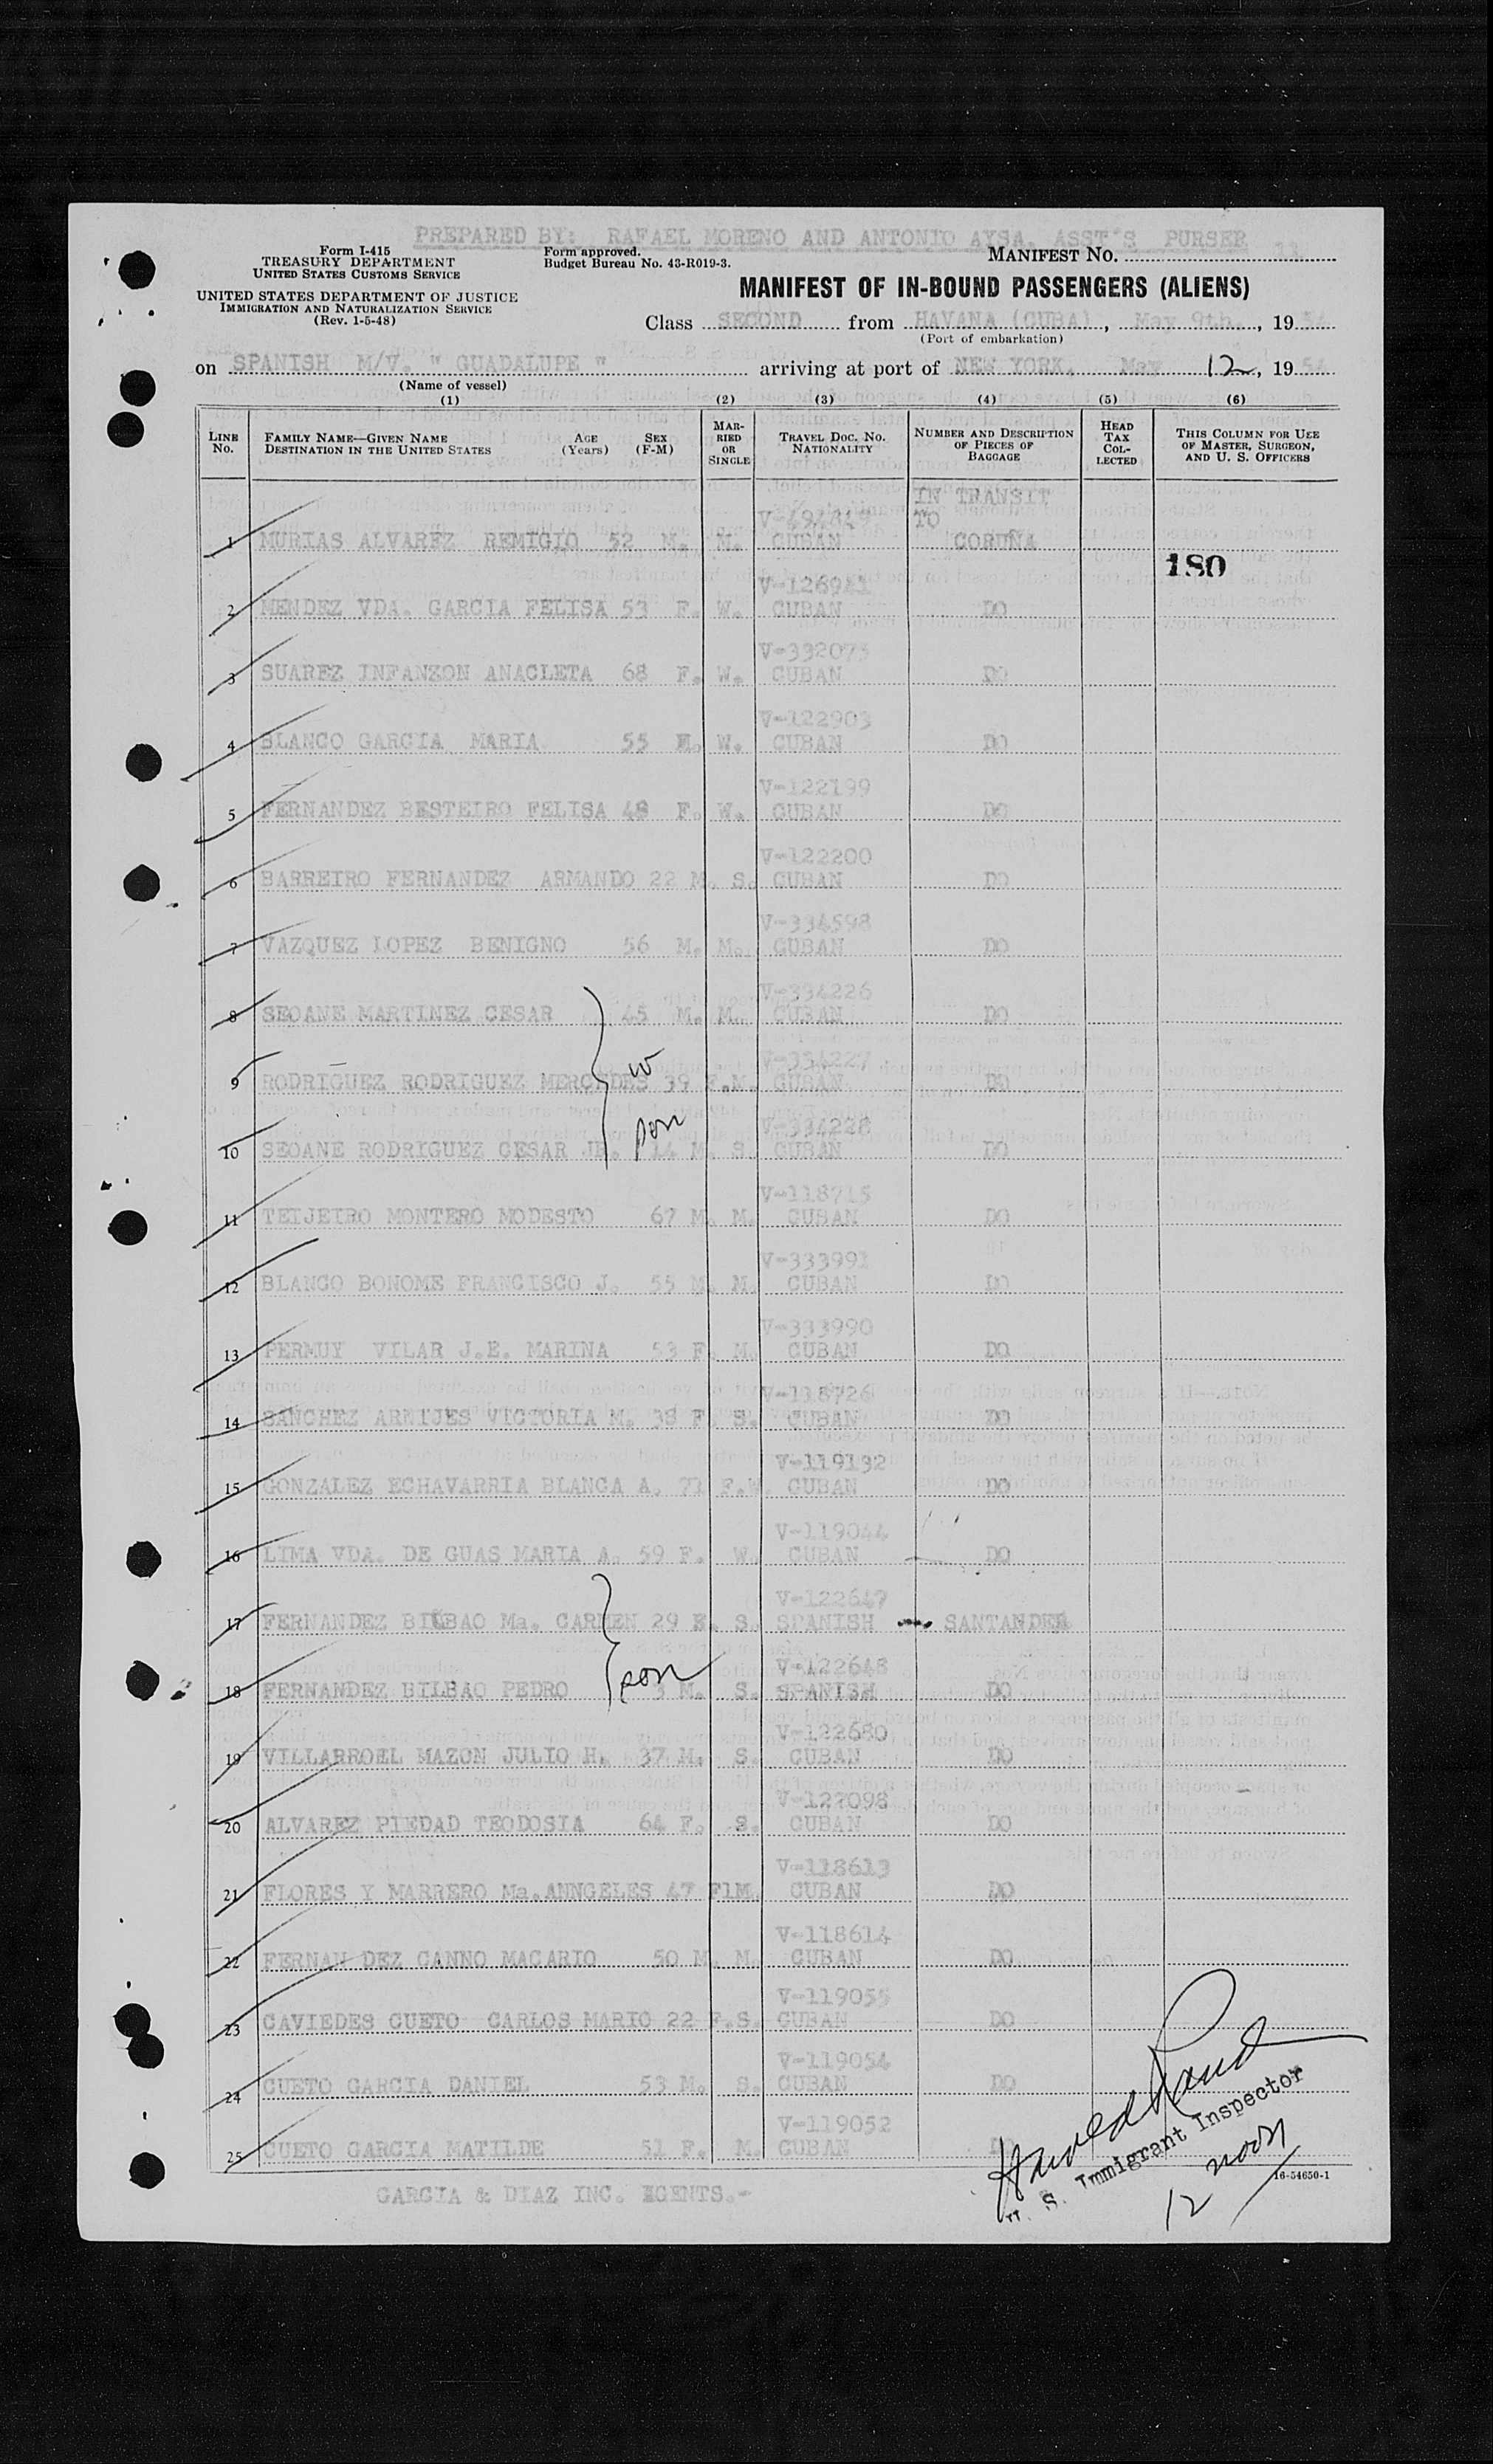 PREPARED BY: RAFAEL MORENO AND ANTONIO AYSA. ASST'S PURSER
Form I-415
TREASURY DEPARTMENT
UNITED STATES CUSTOMS SERVICE
Form approved.
Budget Bureau No. 43-R019-3.
MANIFEST NO. 11
UNITED STATES DEPARTMENT OF JUSTICE
IMMIGRATION AND NATURALIZATION SERVICE
(Rev. 1-5-48)
MANIFEST OF IN-BOUND PASSENGERS (ALIENS)
Class SECOND from HAVANA (CUBA), May 9th., 1954
(Port of embarkation)
on SPANISH M/V. " GUADALUPE " arriving at port of NEW YORK, May 12, 1954
(Name of vessel)
(1) (2) (3) (4) (5) (6)
LINE NO. FAMILY NAME—GIVEN NAME DESTINATION IN THE UNITED STATES AGE (Years) SEX (F-M) MARRIED OR SINGLE TRAVEL DOC. NO. NATIONALITY NUMBER AND DESCRIPTION OF PIECES OF BAGGAGE HEAD TAX COLLECTED THIS COLUMN FOR USE OF MASTER, SURGEON, AND U. S. OFFICERS
IN TRANSIT
V-494849 TO
1 MURIAS ALVAREZ REMIGIO 52 M. M. CUBAN CORUÑA
180
V-126941
2 MENDEZ VDA. GARCIA FELISA 53 F. W. CUBAN DO
V-332075
3 SUAREZ INFANZON ANACLETA 68 F. W. CUBAN DO
V-122903
4 BLANCO GARCIA MARIA 55 F. W. CUBAN DO
V-122199
5 FERNANDEZ BESTEIRO FELISA 48 F. W. CUBAN DO
V-122200
6 BARREIRO FERNANDEZ ARMANDO 22 M. S. CUBAN DO
V-334598
7 VAZQUEZ LOPEZ BENIGNO 56 M. M. CUBAN DO
V-334226
8 SEOANE MARTINEZ CESAR 45 M. M. CUBAN DO
w V-334227
9 RODRIGUEZ RODRIGUEZ MERCEDES 39 F.M. CUBAN DO
son V-334228
10 SEOANE RODRIGUEZ CESAR JR. 14 M. S. CUBAN DO
V-118715
11 TEIJEIRO MONTERO MODESTO 67 M. M. CUBAN DO
V-333991
12 BLANCO BONOME FRANCISCO J. 55 M. M. CUBAN DO
V-333990
13 PERMUY VILAR J.E. MARINA 53 F. M. CUBAN DO
V-118726
14 SANCHEZ ARMIJES VICTORIA M. 38 F. S. CUBAN DO
V-119132
15 GONZALEZ ECHAVARRIA BLANCA A. 71 F.W. CUBAN DO
V-119044
16 LIMA VDA. DE GUAS MARIA A. 59 F. W. CUBAN DO
V-122647
17 FERNANDEZ BILBAO Ma. CARMEN 29 F. S. SPANISH SANTANDER
son V-122648
18 FERNANDEZ BILBAO PEDRO 3 M. S. SPANISH DO
V-122680
19 VILLARROEL MAZON JULIO H. 37 M. S. CUBAN DO
V-122098
20 ALVAREZ PIEDAD TEODOSIA 64 F. S. CUBAN DO
V-118613
21 FLORES Y MARRERO Ma.ANNGELES 47 F1M. CUBAN DO
V-118614
22 FERNAN DEZ CANNO MACARIO 50 M. M. CUBAN DO
V-119055
23 CAVIEDES CUETO CARLOS MARIO 22 F.S. CUBAN DO
V-119054
24 CUETO GARCIA DANIEL 53 M. S. CUBAN DO
V-119052
25 CUETO GARCIA MATILDE 51 F. M. CUBAN DO
Harold Rand
U. S. Immigrant Inspector
12 noon
16-54650-1
GARCIA & DIAZ INC. EGENTS.-